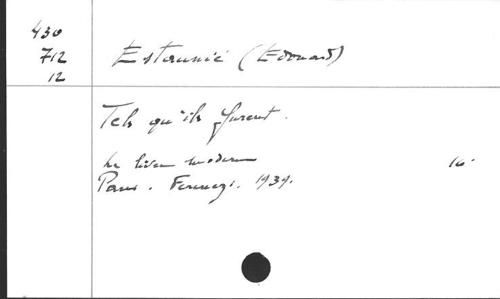 430
712
12
Estaunié (Edouard)
Tels qu'ils furent.
Le livre moderne 16.
Paris. Ferenczi. 1939.